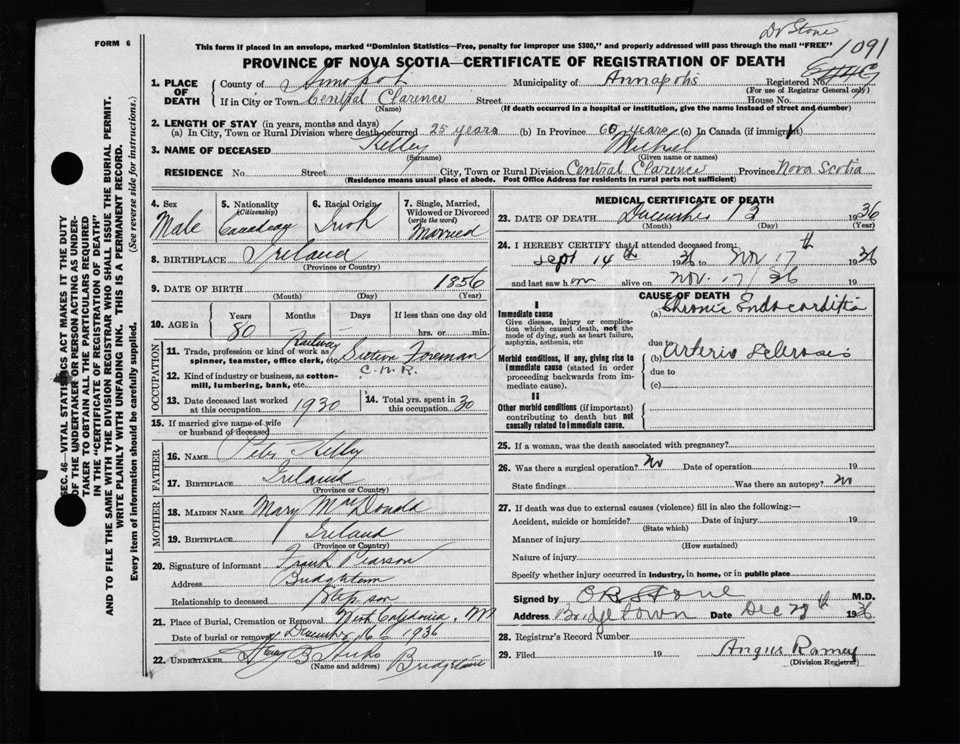 Dr Stone
FORM 6
This form if placed in an envelope, marked "Dominion Statistics—Free, penalty for improper use $300," and properly addressed will pass through the mail "FREE"
1091
PROVINCE OF NOVA SCOTIA—CERTIFICATE OF REGISTRATION OF DEATH
1. PLACE OF DEATH
County of Municipality of Annapolis Registered No.
(For use of Registrar General only)
If in City or Town Central Clarence Street House No.
(Name) (If death occurred in a hospital or institution, give the name instead of street and number)
2. LENGTH OF STAY (in years, months and days)
(a) In City, Town or Rural Division where death occurred 25 years (b) In Province 60 years (c) In Canada (if immigrant)
3. NAME OF DECEASED Kelley
(Surname) (Given name or names)
RESIDENCE No. Street City, Town or Rural Division Central Clarence Province Nova Scotia
(Residence means usual place of abode. Post Office Address for residents in rural parts not sufficient)
4. Sex
Male
5. Nationality
(Citizenship)
Canadian
6. Racial Origin
Irish
7. Single, Married, Widowed or Divorced
(write the word)
Married
8. BIRTHPLACE Ireland
(Province or Country)
9. DATE OF BIRTH 1856
(Month) (Day) (Year)
10. AGE in Years Months Days If less than one day old
80 hrs. or min.
OCCUPATION
11. Trade, profession or kind of work as spinner, teamster, office clerk, etc. Railway Section Foreman
12. Kind of industry or business, as cotton-mill, lumbering, bank, etc. C.N.R.
13. Date deceased last worked at this occupation 1930
14. Total yrs. spent in this occupation 30
15. If married give name of wife or husband of deceased
FATHER
16. NAME Peter Kelley
17. BIRTHPLACE Ireland
(Province or Country)
MOTHER
18. MAIDEN NAME Mary MacDonald
19. BIRTHPLACE Ireland
(Province or Country)
20. Signature of informant Frank Pearson
Address Bridgetown
Relationship to deceased Step-son
21. Place of Burial, Cremation or Removal
Date of burial or removal December 16 1936
22. UNDERTAKER B Hicks Bridgetown
(Name and address)
MEDICAL CERTIFICATE OF DEATH
23. DATE OF DEATH December 13 1936
(Month) (Day) (Year)
24. I HEREBY CERTIFY that I attended deceased from:
Sept 14th 1936 to Nov 17th 1936
and last saw him alive on Nov. 17 36 19
CAUSE OF DEATH
I
Immediate cause
Give disease, injury or complication which caused death, not the mode of dying, such as heart failure, asphyxia, asthenia, etc
(a) Chronic Endocarditis
due to
Morbid conditions, if any, giving rise to immediate cause (stated in order proceeding backwards from immediate cause).
(b) Arterio Sclerosis
due to
(c)
II
Other morbid conditions (if important) contributing to death but not causally related to immediate cause.
25. If a woman, was the death associated with pregnancy?
26. Was there a surgical operation? No Date of operation 19
State findings Was there an autopsy? No
27. If death was due to external causes (violence) fill in also the following:—
Accident, suicide or homicide? Date of injury 19
(State which)
Manner of injury
(How sustained)
Nature of injury
Specify whether injury occurred in industry, in home, or in public place
Signed by Stone M.D.
Address Bridgetown Date Dec 1936
28. Registrar's Record Number
29. Filed 19 Angus Ramey
(Division Registrar)
SEC. 46—VITAL STATISTICS ACT MAKES IT THE DUTY
OF THE UNDERTAKER OR PERSON ACTING AS UNDER-
TAKER TO OBTAIN ALL THE PARTICULARS REQUIRED
IN THE "CERTIFICATE OF REGISTRATION OF DEATH"
AND TO FILE THE SAME WITH THE DIVISION REGISTRAR WHO SHALL ISSUE THE BURIAL PERMIT.
WRITE PLAINLY WITH UNFADING INK. THIS IS A PERMANENT RECORD.
Every item of information should be carefully supplied. (See reverse side for instructions.)